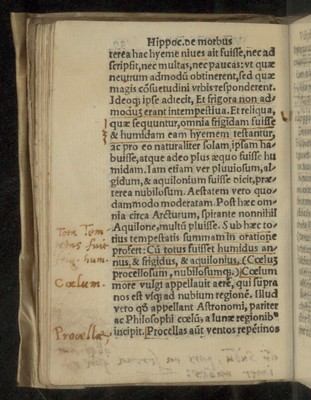 Hippoc. de morbus
terea hac hyeme niues ait fuisse, nec ad
scripsit, nec multas, nec paucas: vt quæ
neutrum admodũ obtinerent, sed quæ
magis cõsuetudini vrbis responderent.
Ideoq; ipse adiecit, Et frigora non ad-
modum erant intempestiua. Et reliqua,
quæ sequuntur, omnia frigidam fuisse
& humidam eam hyemem testantur,
ac pro eo naturaliter solam, ipsam ha-
buisse, atque adeo plus æquo fuisse hu
midam. Iam etiam ver pluuiosum, al-
gidum, & aquilonium fuisse dicit, præ-
terea nubilosum. Aestatem vero quo-
dammodo moderatam. Post hæc om-
nia circa Arcturum, spirante nonnihil
Aquilone, multũ pluisse. Sub hæc to-
tius tempestatis summam in oratione
profert: Cũ totus fuisset humidus an-
nus, & frigidus, & aquilonius. (Cœlũ
procellosum, nubilosumq;.) Cœlum
more vulgi appellauit aerẽ, qui supra
nos est vsq; ad nubium regionẽ. Illud
vero qđ appellant Astronomi, pariter
ac Philosophi cœlũ, a lunæ regionib
incipit. Procellas aũt ventos repẽtinos
Cœlum.
Procellæ